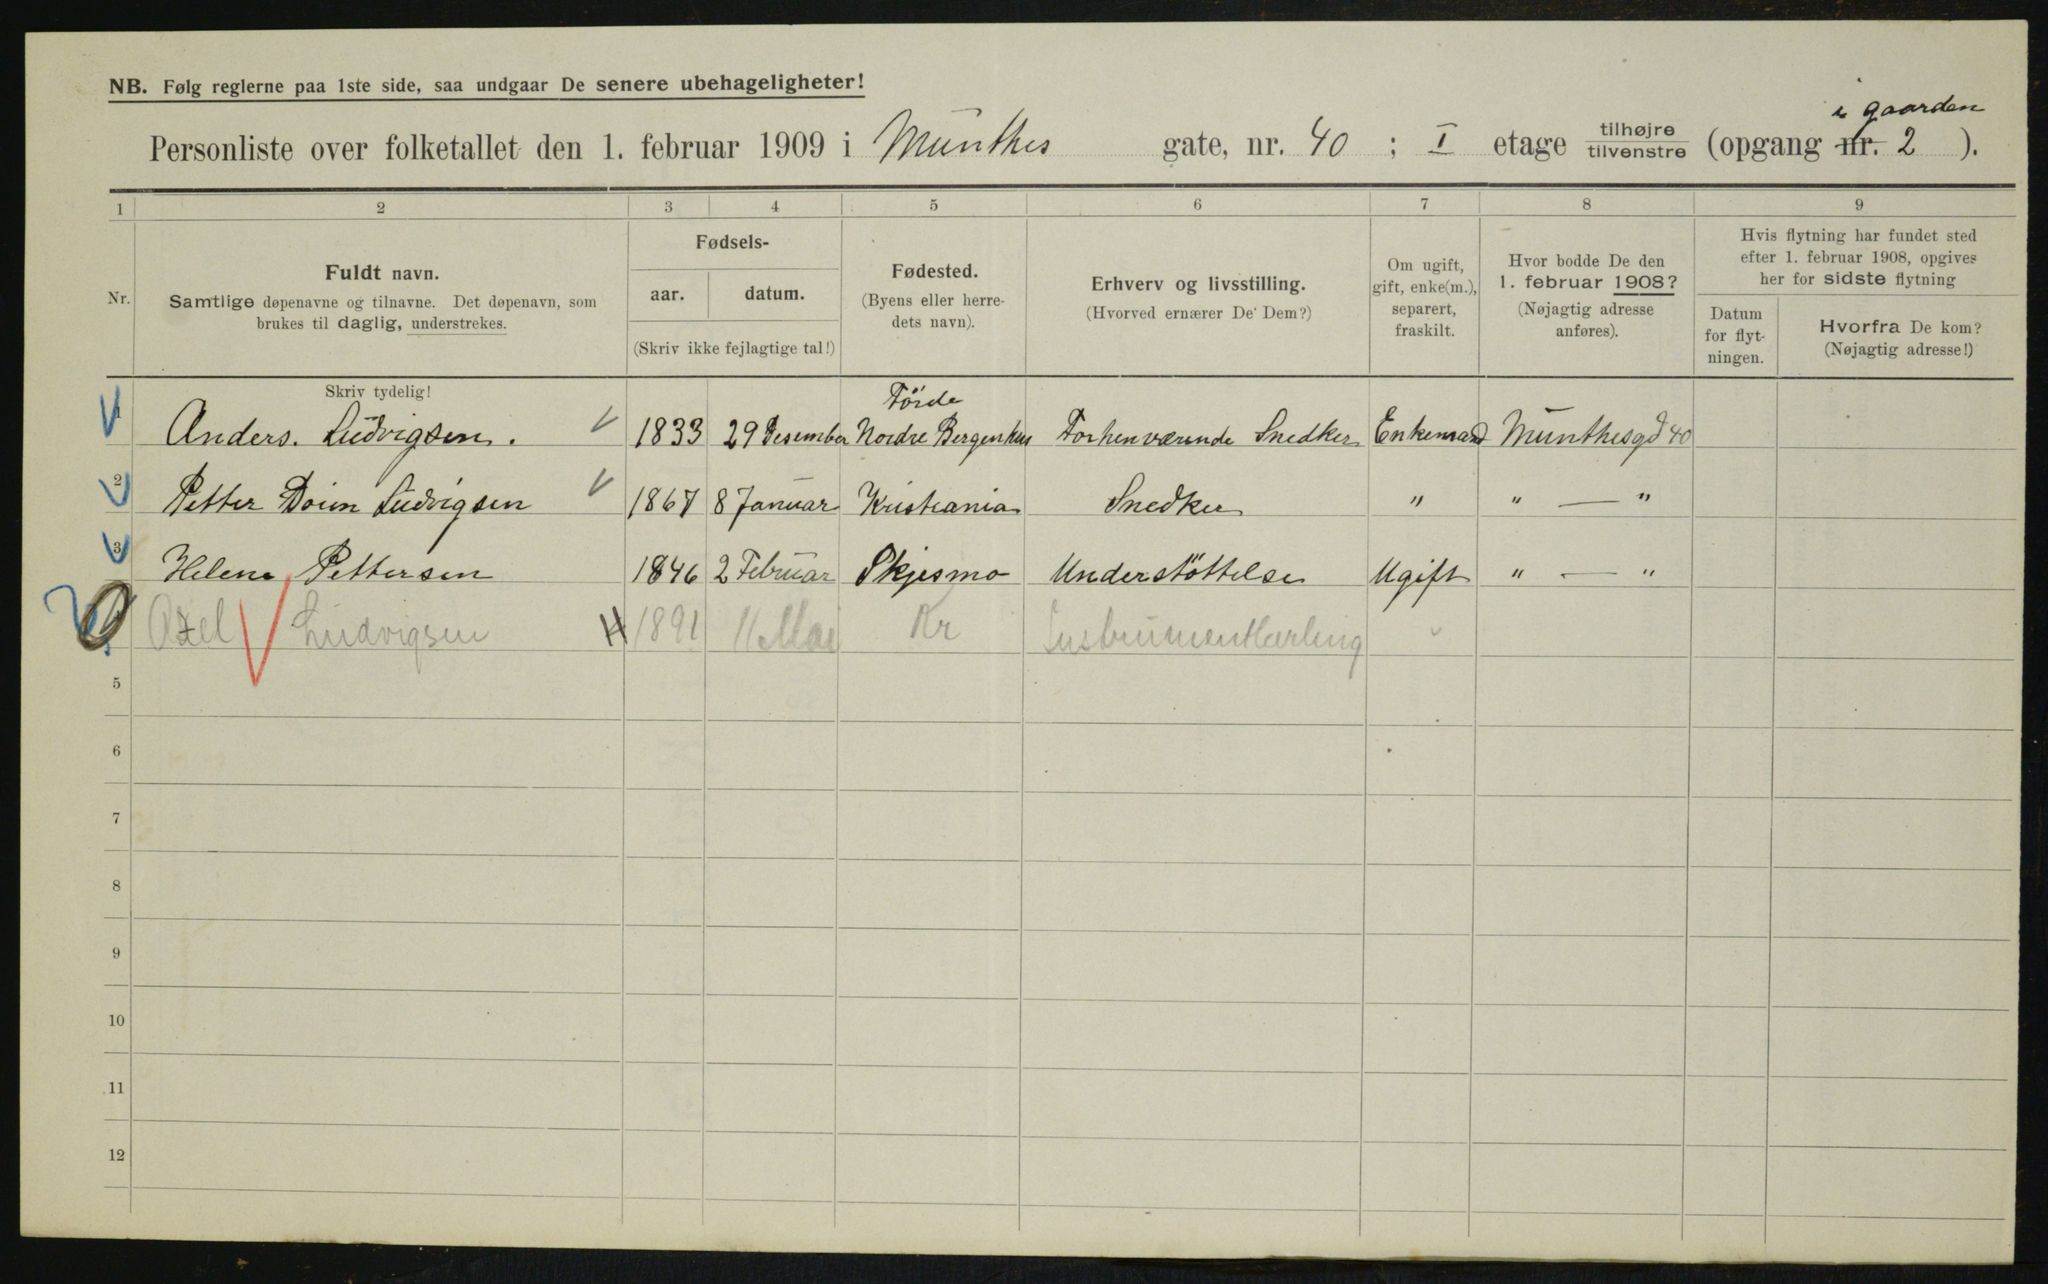 NB. Følg reglerne paa 1ste side, saa undgaar De senere ubehageligheter!
i gaarden
Personliste over folketallet den 1. februar 1909 i Munthes gate, nr. 40 ; I etage tilhøjre tilvenstre (opgang nr. 2 ).
1 2 3 4 5 6 7 8 9
Nr.
Fuldt navn.
Samtlige døpenavne og tilnavne. Det døpenavn, som
brukes til daglig, understrekes.
Fødsels-
aar. datum.
(Skriv ikke fejlagtige tal!)
Fødested.
(Byens eller herre-
dets navn).
Erhverv og livsstilling.
(Hvorved ernærer De Dem?)
Om ugift,
gift, enke(m.),
separert,
fraskilt.
Hvor bodde De den
1. februar 1908?
(Nøjagtig adresse
anføres).
Hvis flytning har fundet sted
efter 1. februar 1908, opgives
her for sidste flytning
Datum
for flyt-
ningen.
Hvorfra De kom?
(Nøjagtig adresse!)
Skriv tydelig!
Förde
1 Anders. Ludvigsen. 1833 29 Desember Nordre Bergenhus Forhenværende Snedker Enkemand Munthesgd 40
2 Petter Ludvigsen 1867 8 Januar Kristiania Snedker " " — "
3 Helene Pettersen 1846 2 Februar Skjesmo Understöttelse Ugift " — "
Axel Ludvigsen H 1891 11 Mai Kr Instrumentlærling "
5
6
7
8
9
10
11
12